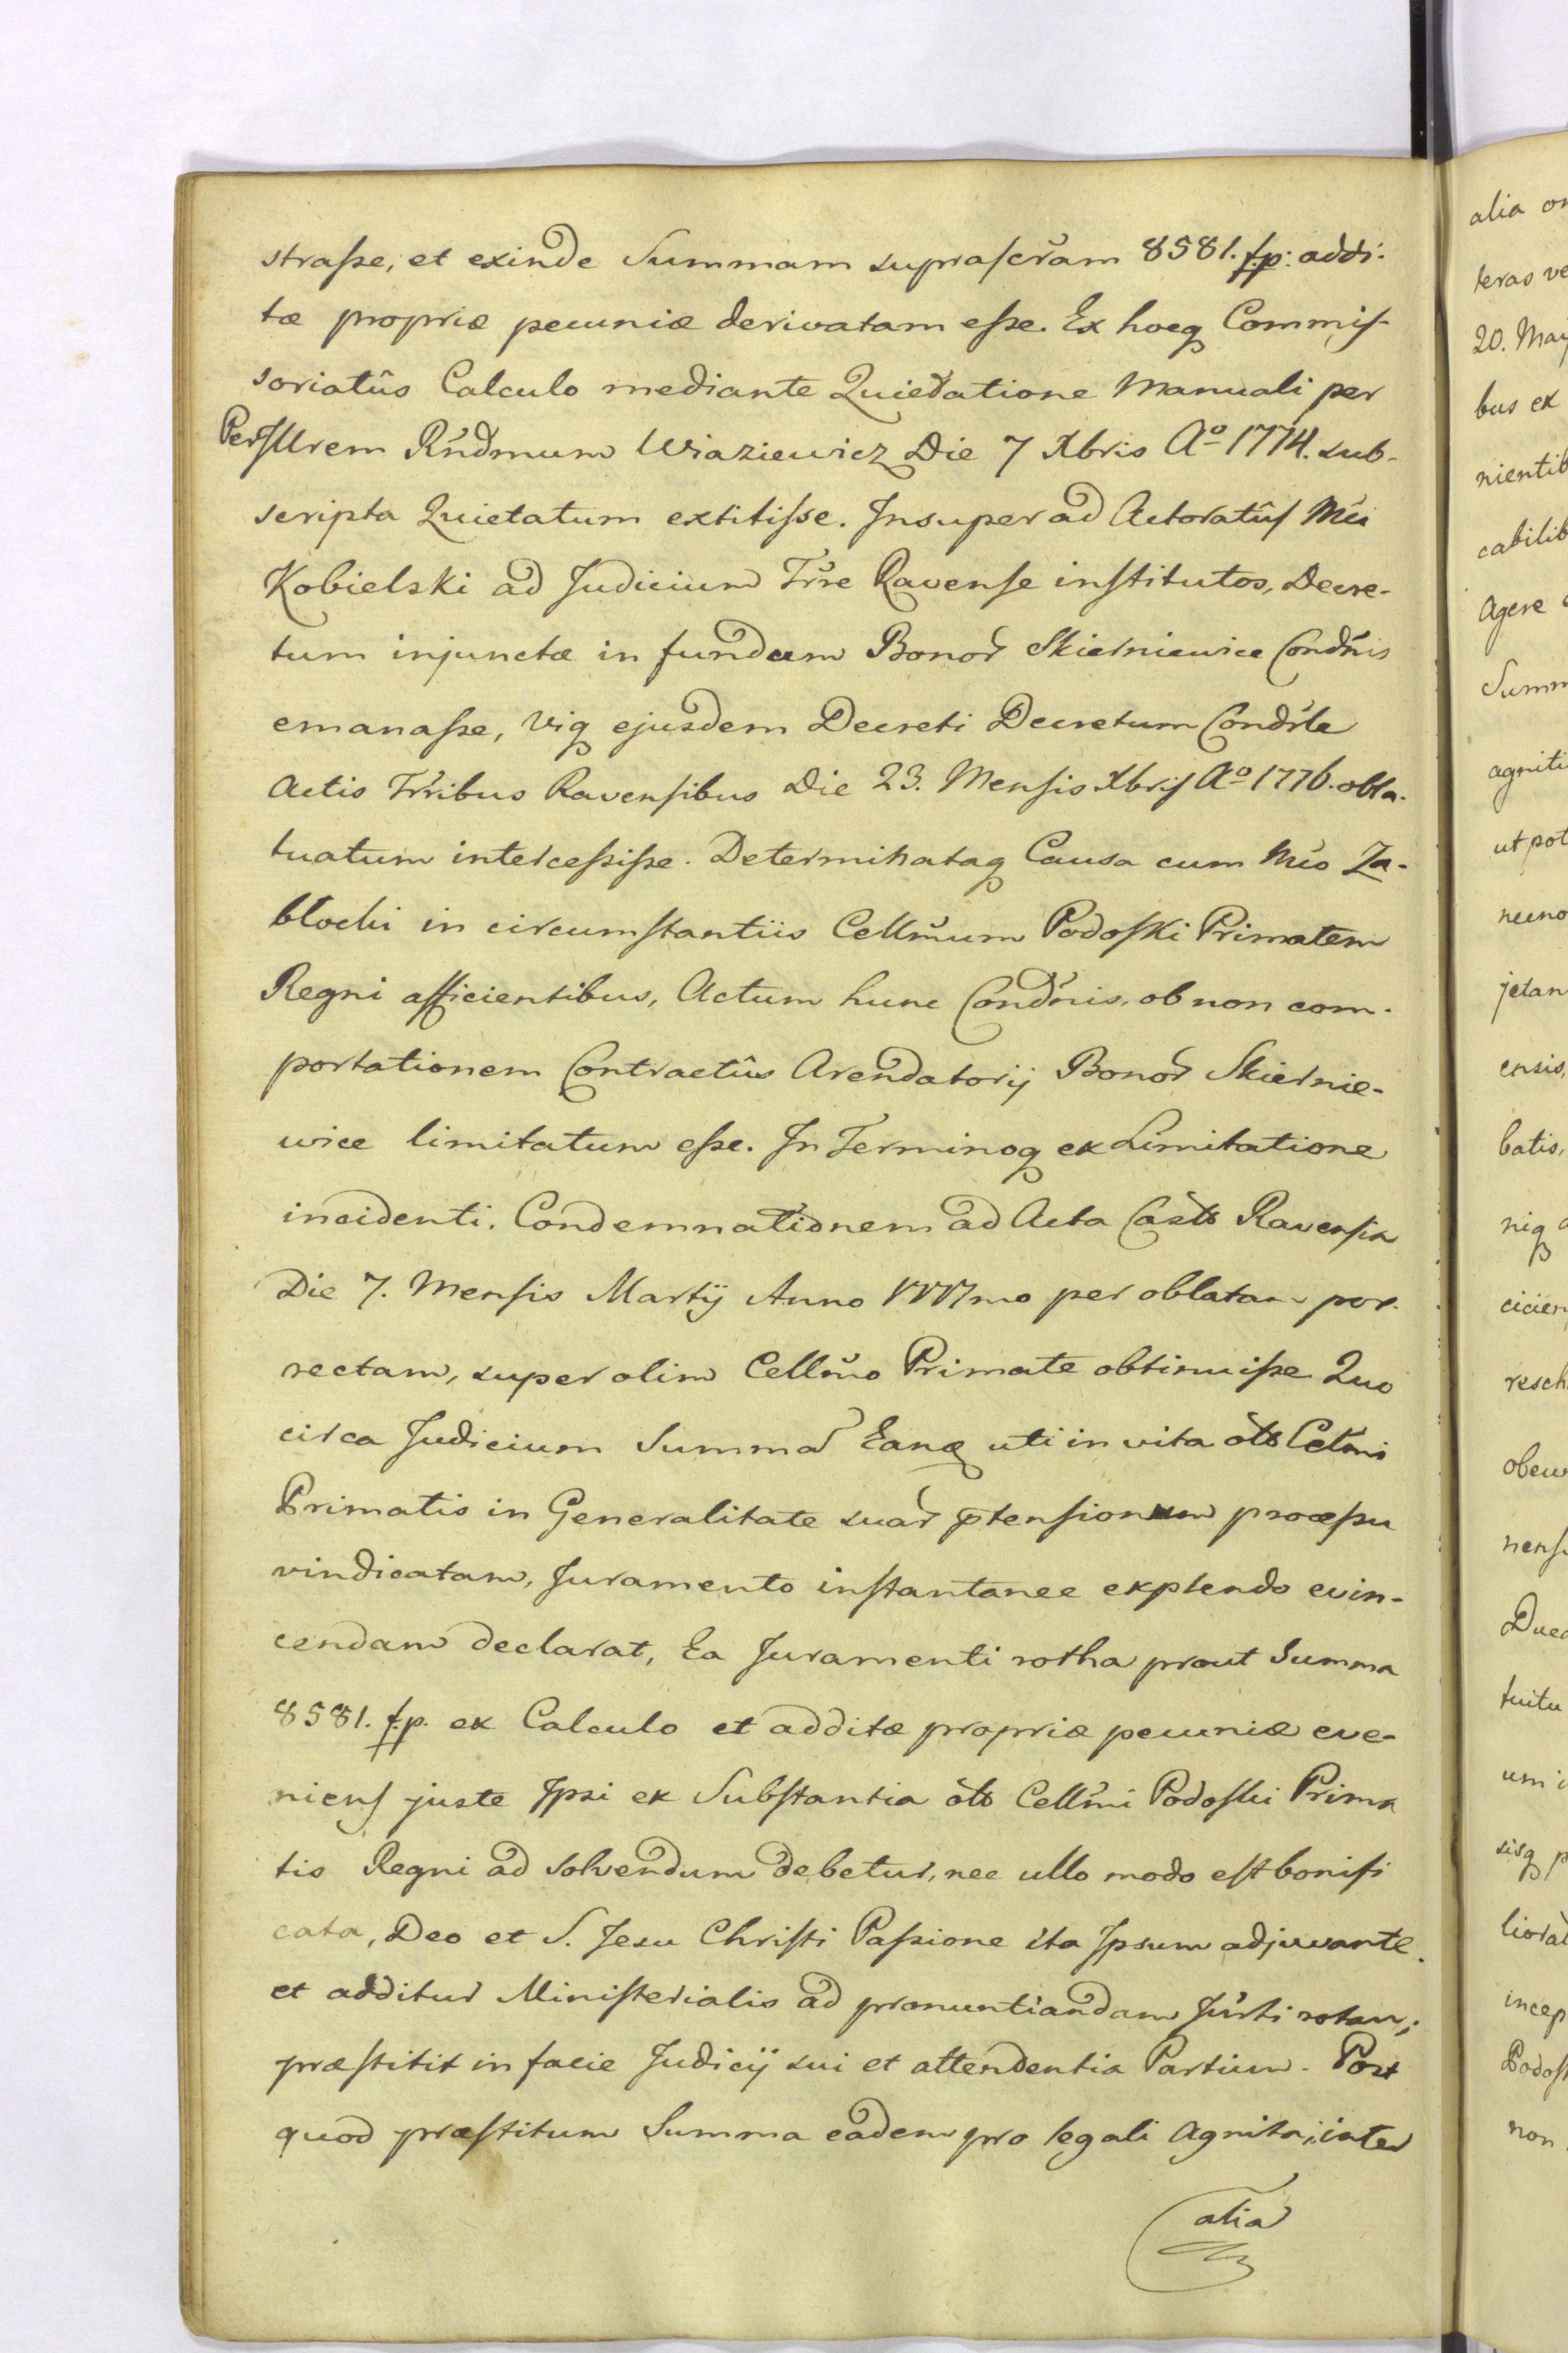 straſse, et exinde Summam supraſcr̃am 8581. f.p: addi-
tæ propriæ pecuniæ derivatam eſse. Ex hocq Commiſ-
soriatûs Calculo mediante Quietatione Manuali per
Perſllrem Rñdmum Wiaziewicz Die 7 Xbris Aº 1774. sub-
scripta Quietatum extitiſse. Insuper ad Actoratûſ Mci
Kobielski ad Judicium Tr̃re Ravenſe inſtitutos, Decre-
tum injunctæ in fundum Bonor Skierniewice Condñis
emanaſse, Viq ejusdem Decreti Decretum Cond̃le
Actis Tr̃ribus Ravenſibus Die 23. Menſis Xbriſ Aº 1776. obla-
tuatum interceſsiſse. Determinataq Causa cum Mco Za-
blocki in circumſtantiis Cellm̃um Podoſki Primatem
Regni afficientibus, Actum hunc Condñis, ob non com-
portationem Contractûs Arendatorij Bonor Skiernie-
wice limitatum eſse. In Terminoq ex Limitatione
incidenti. Condemnationem ad Acta Casts Ravenſia
Die 7. Menſis Martij Anno 1777mo per oblatam por-
rectam, super olim Cellm̃o Primate obtinuiſse Quo
circa Judicium Summa Eanq uti in vita ols Celm̃i
Primatis in Generalitate suar ptenſionum proceſsu
vindicatam, Juramento inſtantanee explendo evin-
cendam declarat, Ea Juramenti rotha prout Summa
8581. f.p. ex Calculo et additæ propriæ pecuniæ eve-
nienſ juste Ipsi ex Subſtantia ols Cellm̃i Podoſki Prima
tis Regni ad solvendum debetur, nec ullo modo eſt bonifi
cata, Deo et S. Jesu Chriſti Paſsione ita Ipsum adjuvante.
et additur Miniſterialis ad pronuntiandam Jur̃ti rotam;
præſtitit in facie Judicij sui et attendentia Partium. Post
quod præſtitum Summa eadem pro legali agnita; inter
alia